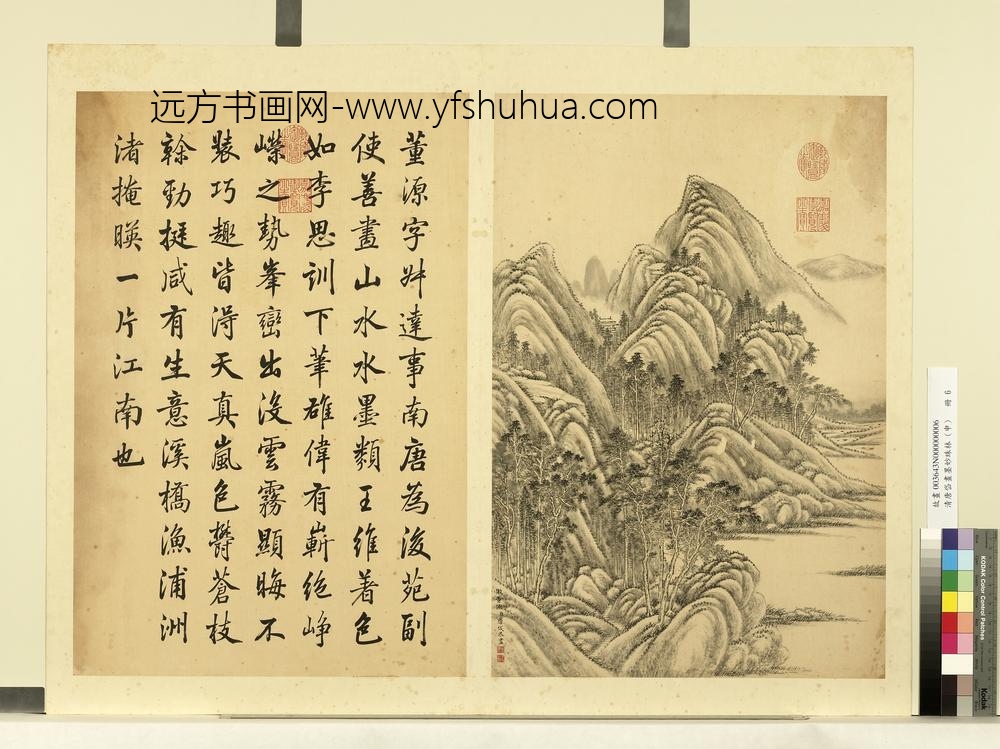 远方书画网-www.yfshuhua.com
董源字艸達事南唐為後苑副
使善畫山水水墨類王維着色
如李思訓下筆雄偉有嶄絕崢
嶸之勢峯巒出沒雲霧顯晦不
裝巧趣皆得天真嵐色欝蒼枝
榦勁挺咸有生意溪橋漁浦洲
渚掩暎一片江南也
故畫003643N000000006
清唐岱畫墨妙珠林(申) 冊 6
KODAK Color Control Patches
Kodak